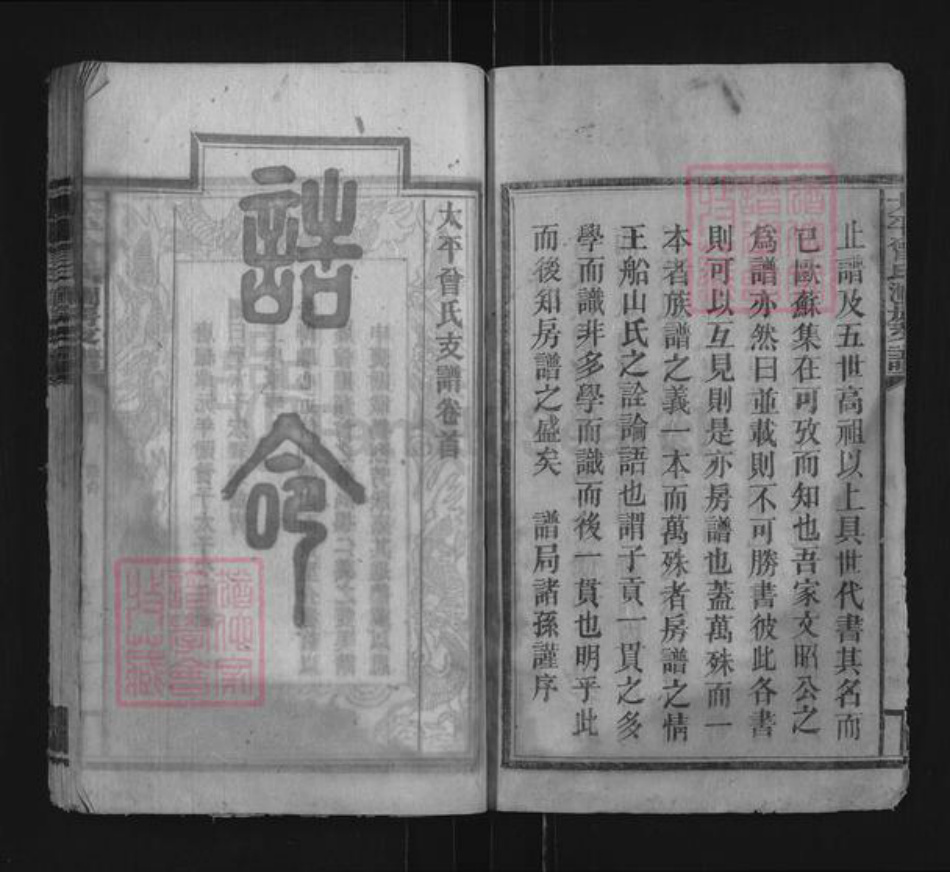 止譜及五世高祖以上具世代書其名而
已歐蘇集在可攷而知也吾家文昭公之
爲譜亦然曰並載則不可勝書彼此各書
則可以互見則是亦房譜也蓋萬殊而一
本者族譜之義一本而萬殊者房譜之情
王船山氏之詮論語也謂子貢一貫之多
學而識非多學而識而後一貫也明乎此
而後知房譜之盛矣　譜局諸孫謹序
太平曾氏支譜卷首
誥命